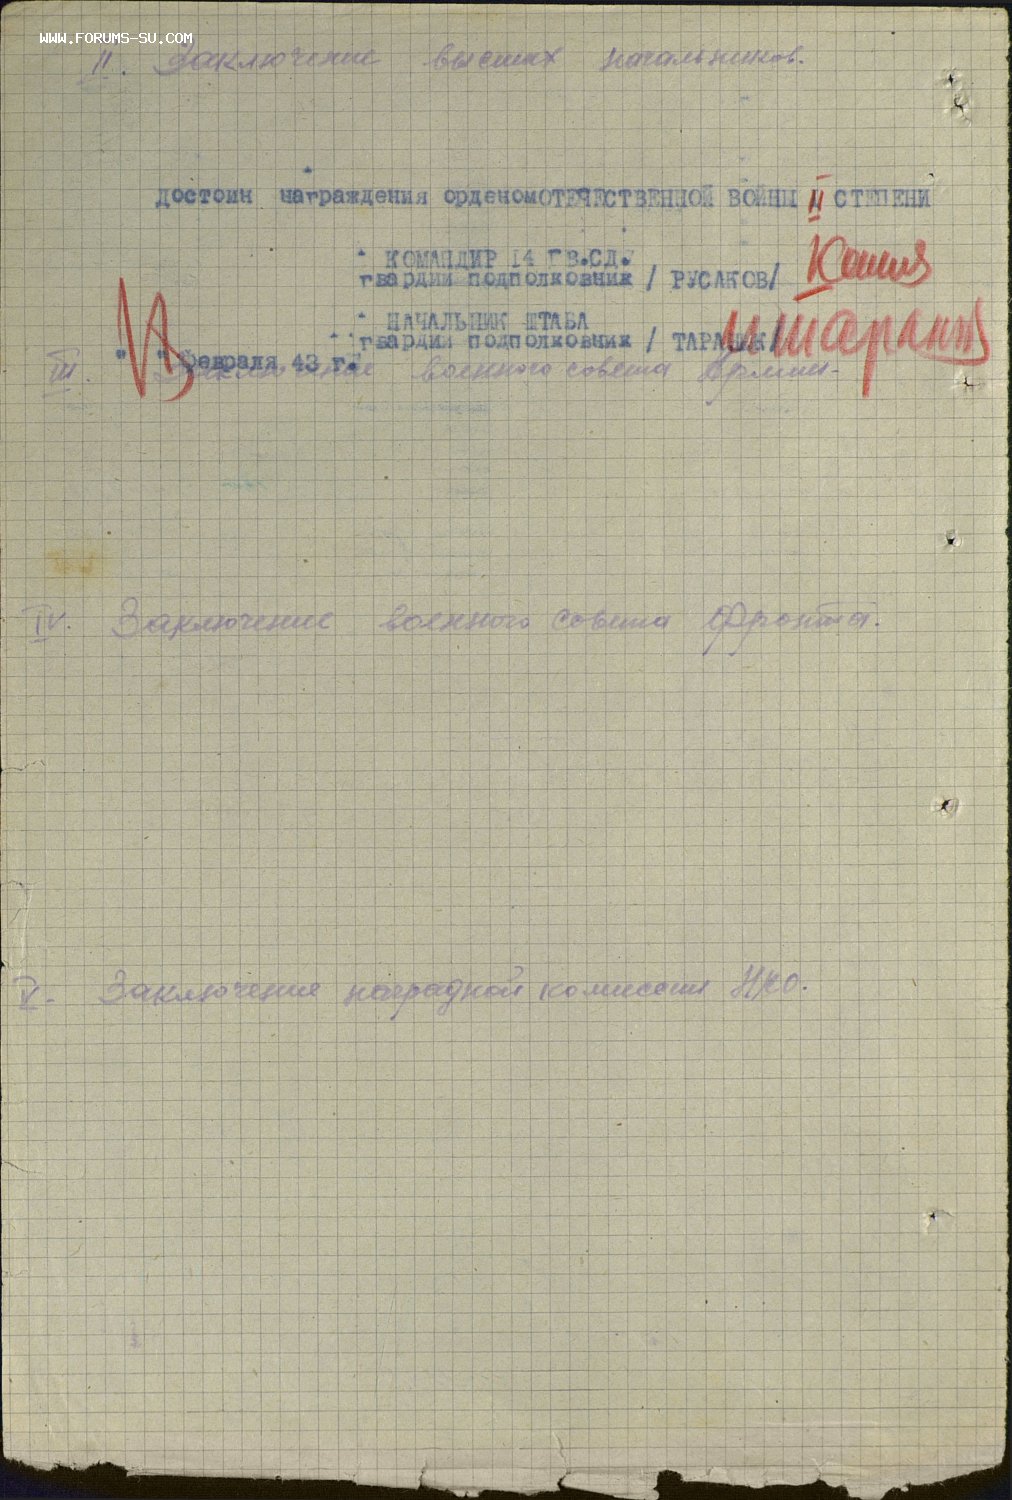 WWW.FORUMS-SU.COM
II. Заключение высших начальников.
достоин награждения орденом ОТЕЧЕСТВЕННОЙ ВОЙНЫ II СТЕПЕНИ
КОМАНДИР 14 ГВ.СД.
гвардии подполковник / РУСАКОВ/
Копия
НАЧАЛЬНИК ШТАБА
гвардии подполковник / ТАРАНИК/
" " февраля 43 г.
III. Заключение военного совета Армии-
IV. Заключение военного совета Фронта.
V. Заключение наградной комиссии НКО.